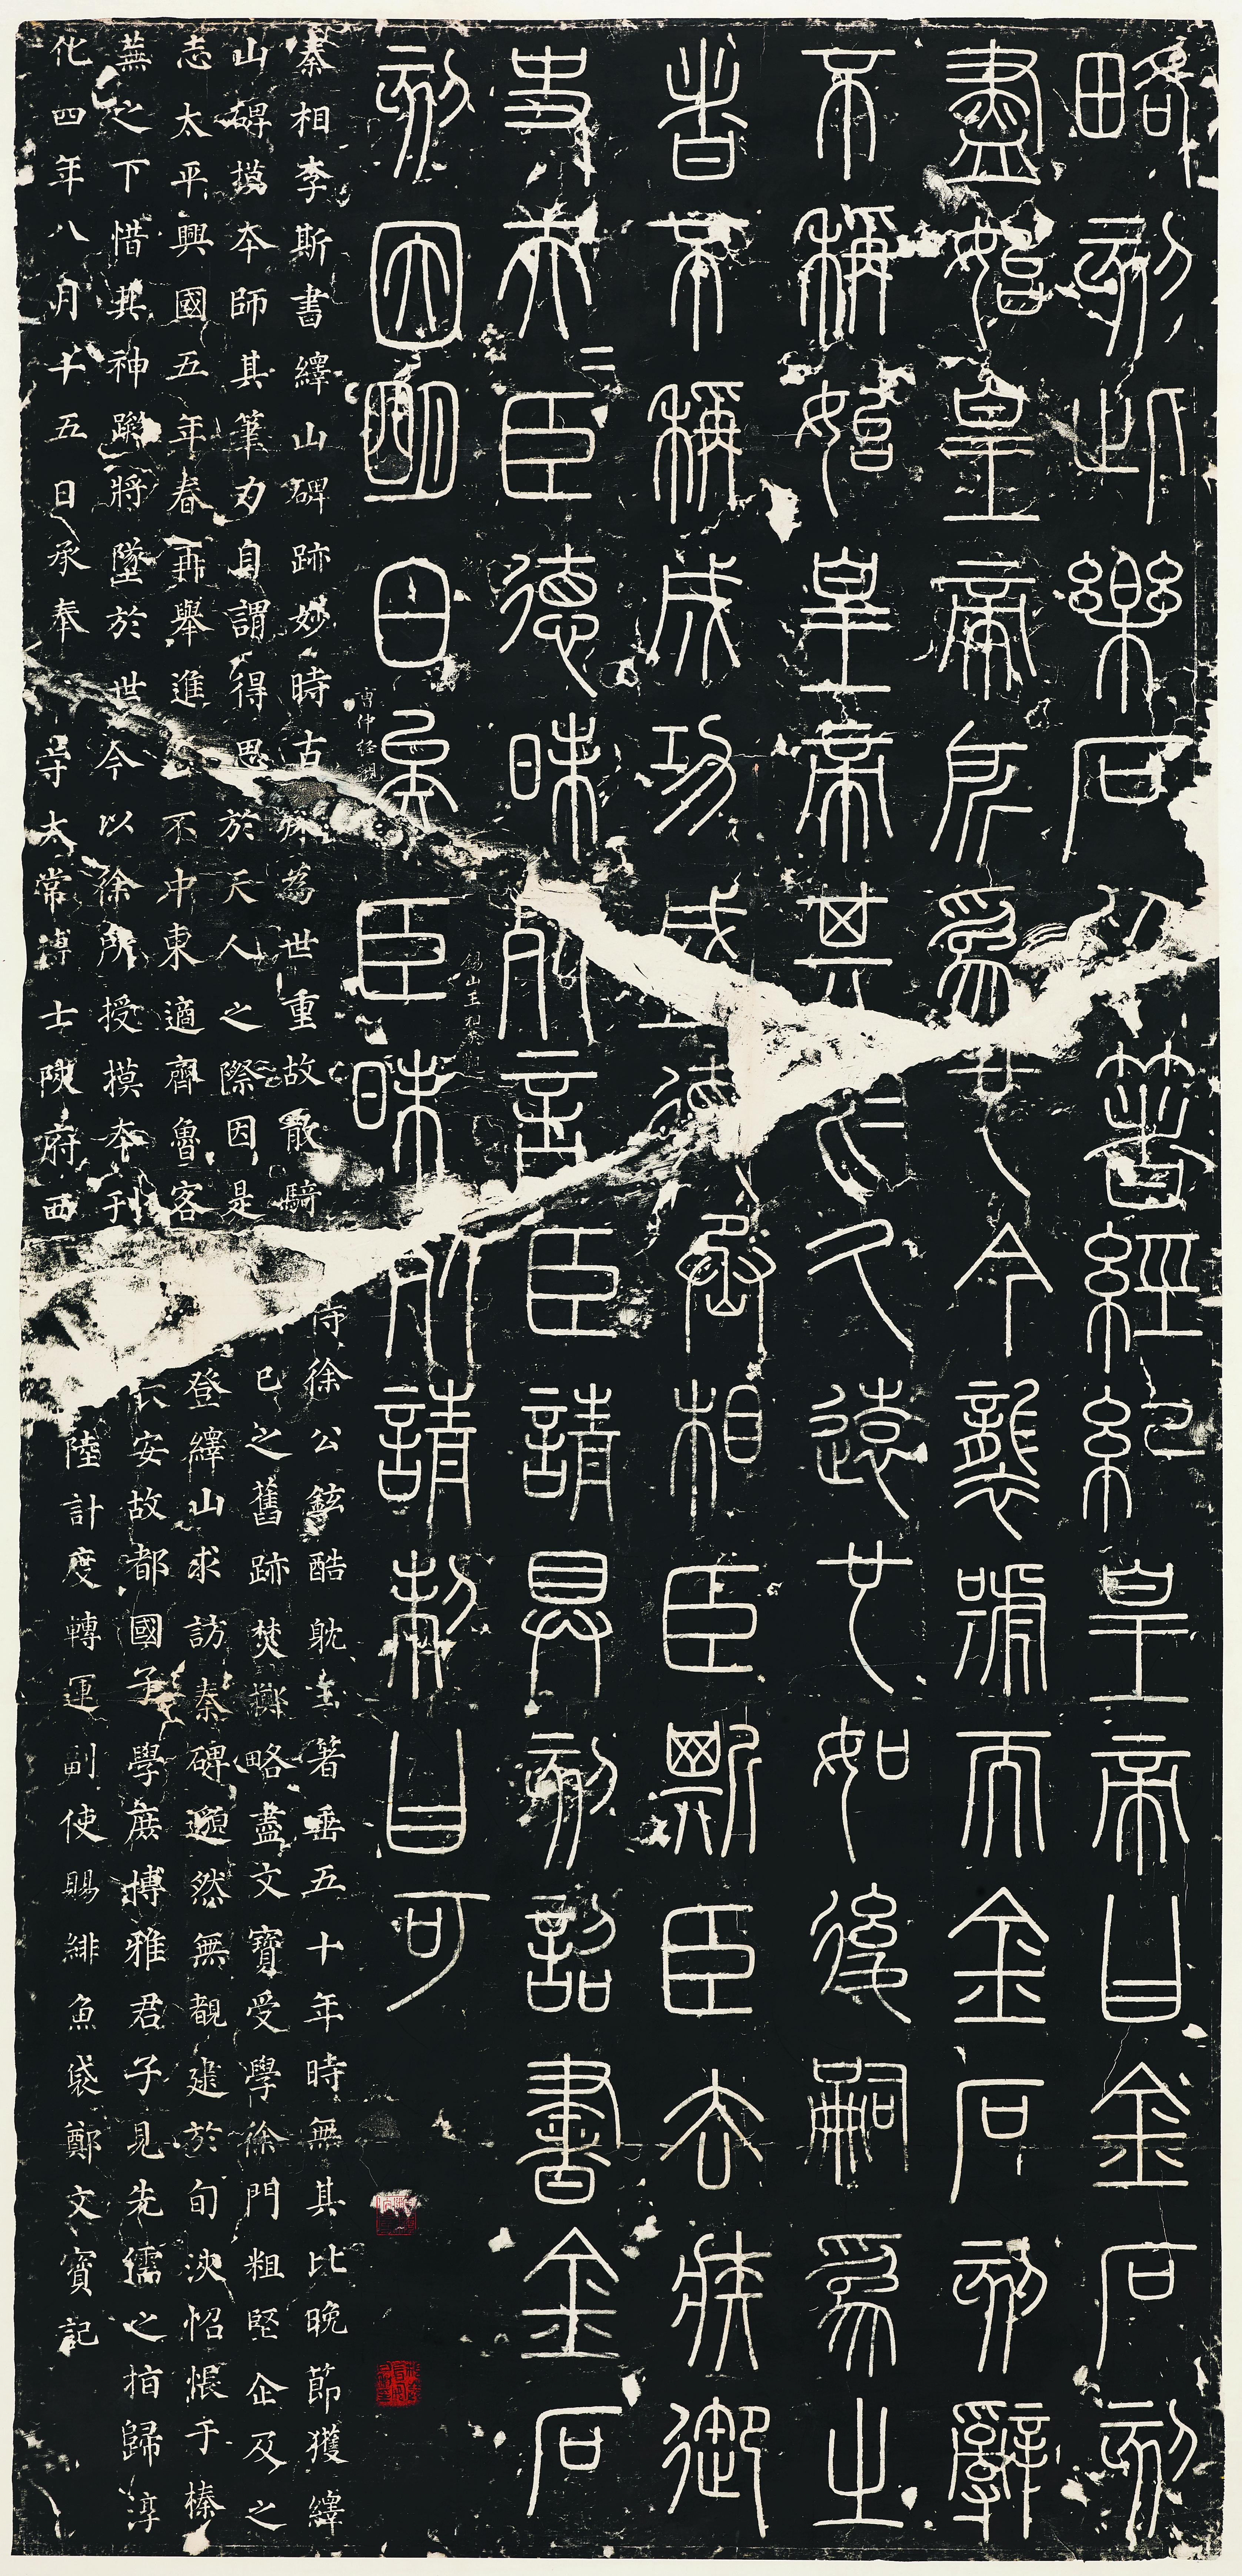 略刻此樂石以著經紀皇帝曰金石刻
盡始皇帝所為也今襲號而金石刻辭
不稱始皇帝其於久遠也如後嗣為之
者不稱成功盛德丞相臣斯臣去疾御
史夫=臣德昧死言臣請具刻詔書金石
刻因明白矣臣昧死請制曰可
秦相李斯書繹山碑跡妙時古殊為世重故散騎侍徐公鉉酷躭玉著垂五十年時無其比晚節獲繹
山碑摸本師其筆力自謂得思於天人之際因是己之舊跡焚擲略盡文寶受學徐門粗堅企及之
志太平興國五年春再舉進不中東適齊魯客登繹山求訪秦碑邈然無覩逮於旬浹怊悵于榛
蕪之下惜其神蹤將墜於世今以徐所授摸本刊安故都國子學庶博雅君子見先儒之指歸淳
化四年八月十五日承奉守太常博士陝府西陸計度轉運副使賜緋魚袋鄭文寶記